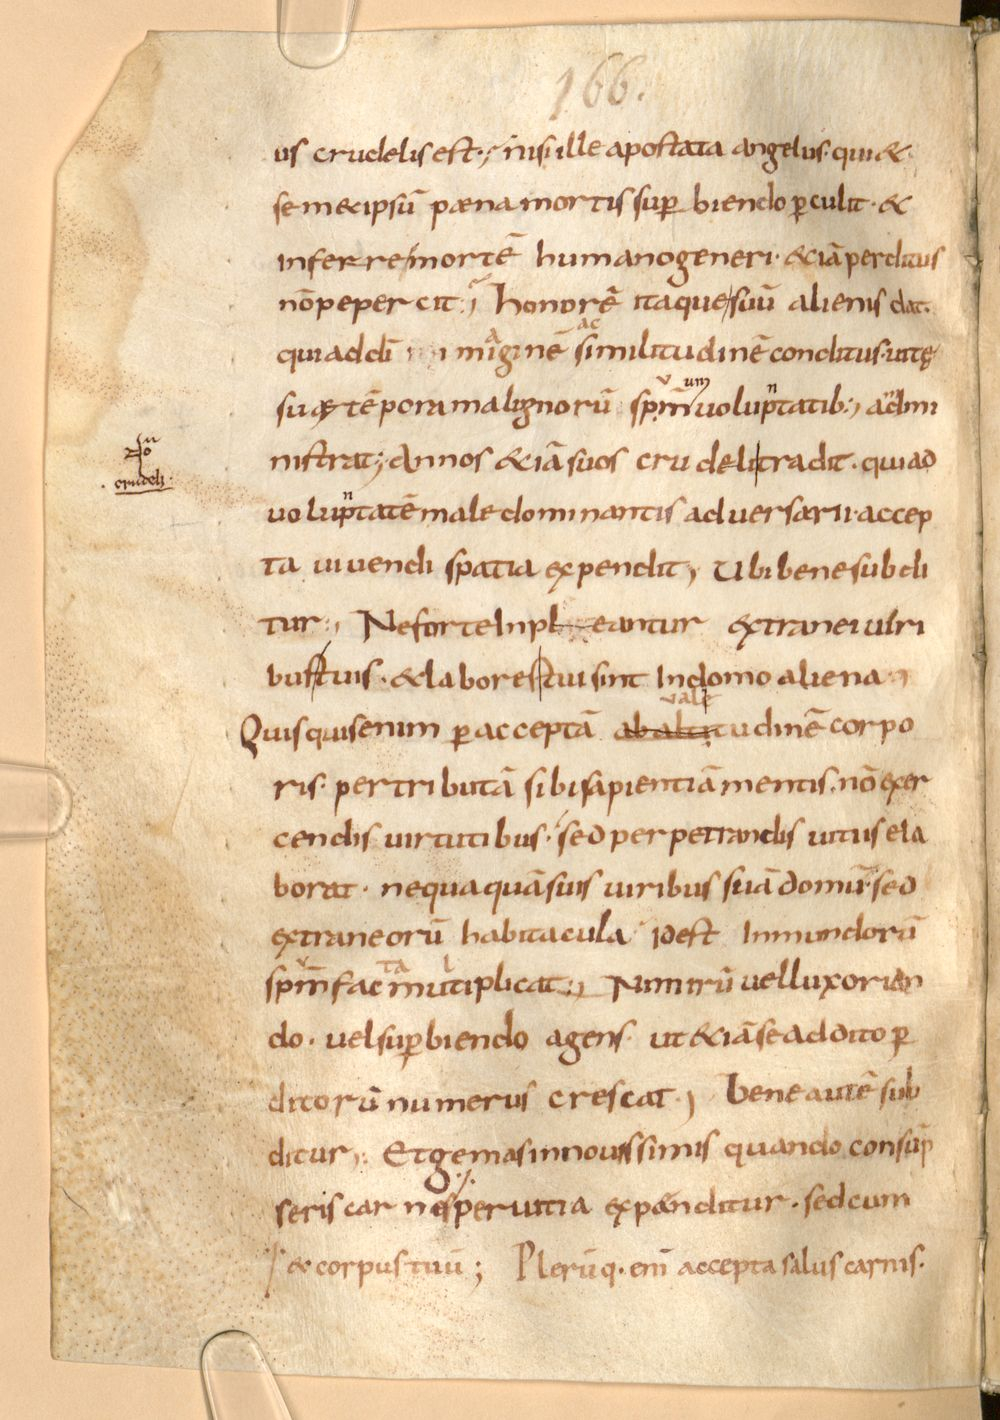 166.
us crudelis est·; nisi ille apostata angelus· qui &
semetipsū pœna mortis sup̱biendo ꝑculit· &
inferre mortē humano generi· & iā perditus
nō pepercit; honorē itaque suū alienis dat·
qui ad dī imaginē ac similitudinē conditus· uitę
suę tēpora malignorū spm̄uum uoluptatib:, admi
nistrat; Annos & iā suos crudeli tradit· qui ad
in
crudeli·
uoluntatē male dominantis aduersarii· accep
ta uiuendi spatia expendit, Ubi bene subdi
tur:, Ne forte Inpleantur extranei uiri
bus tuis· & labores tui sint In domo aliena
Quisquis enim ꝑ acceptā ab alitudinē corpo
vale
ris· per tributā sibi sapientiā mentis· nō exer
cendis uirtutibus· sed perpetrandis uitiis ela
borat· nequaquā suis uiribus suā domū· sed
extraneorū habitacula idest Inmundorū
spm̄ facta multiplicat:, Nimirū uel luxorian
do· uel sup̱biendo agens· ut & iā se addito ꝑ
ditorū numerus crescat·, bene autē sub
ditur,: Et gemas in nouissimis quando consūp
seris carnes per uitia expenditur· sed cum
& corpus tuū; Plerūq· enī accepta salus carnis·